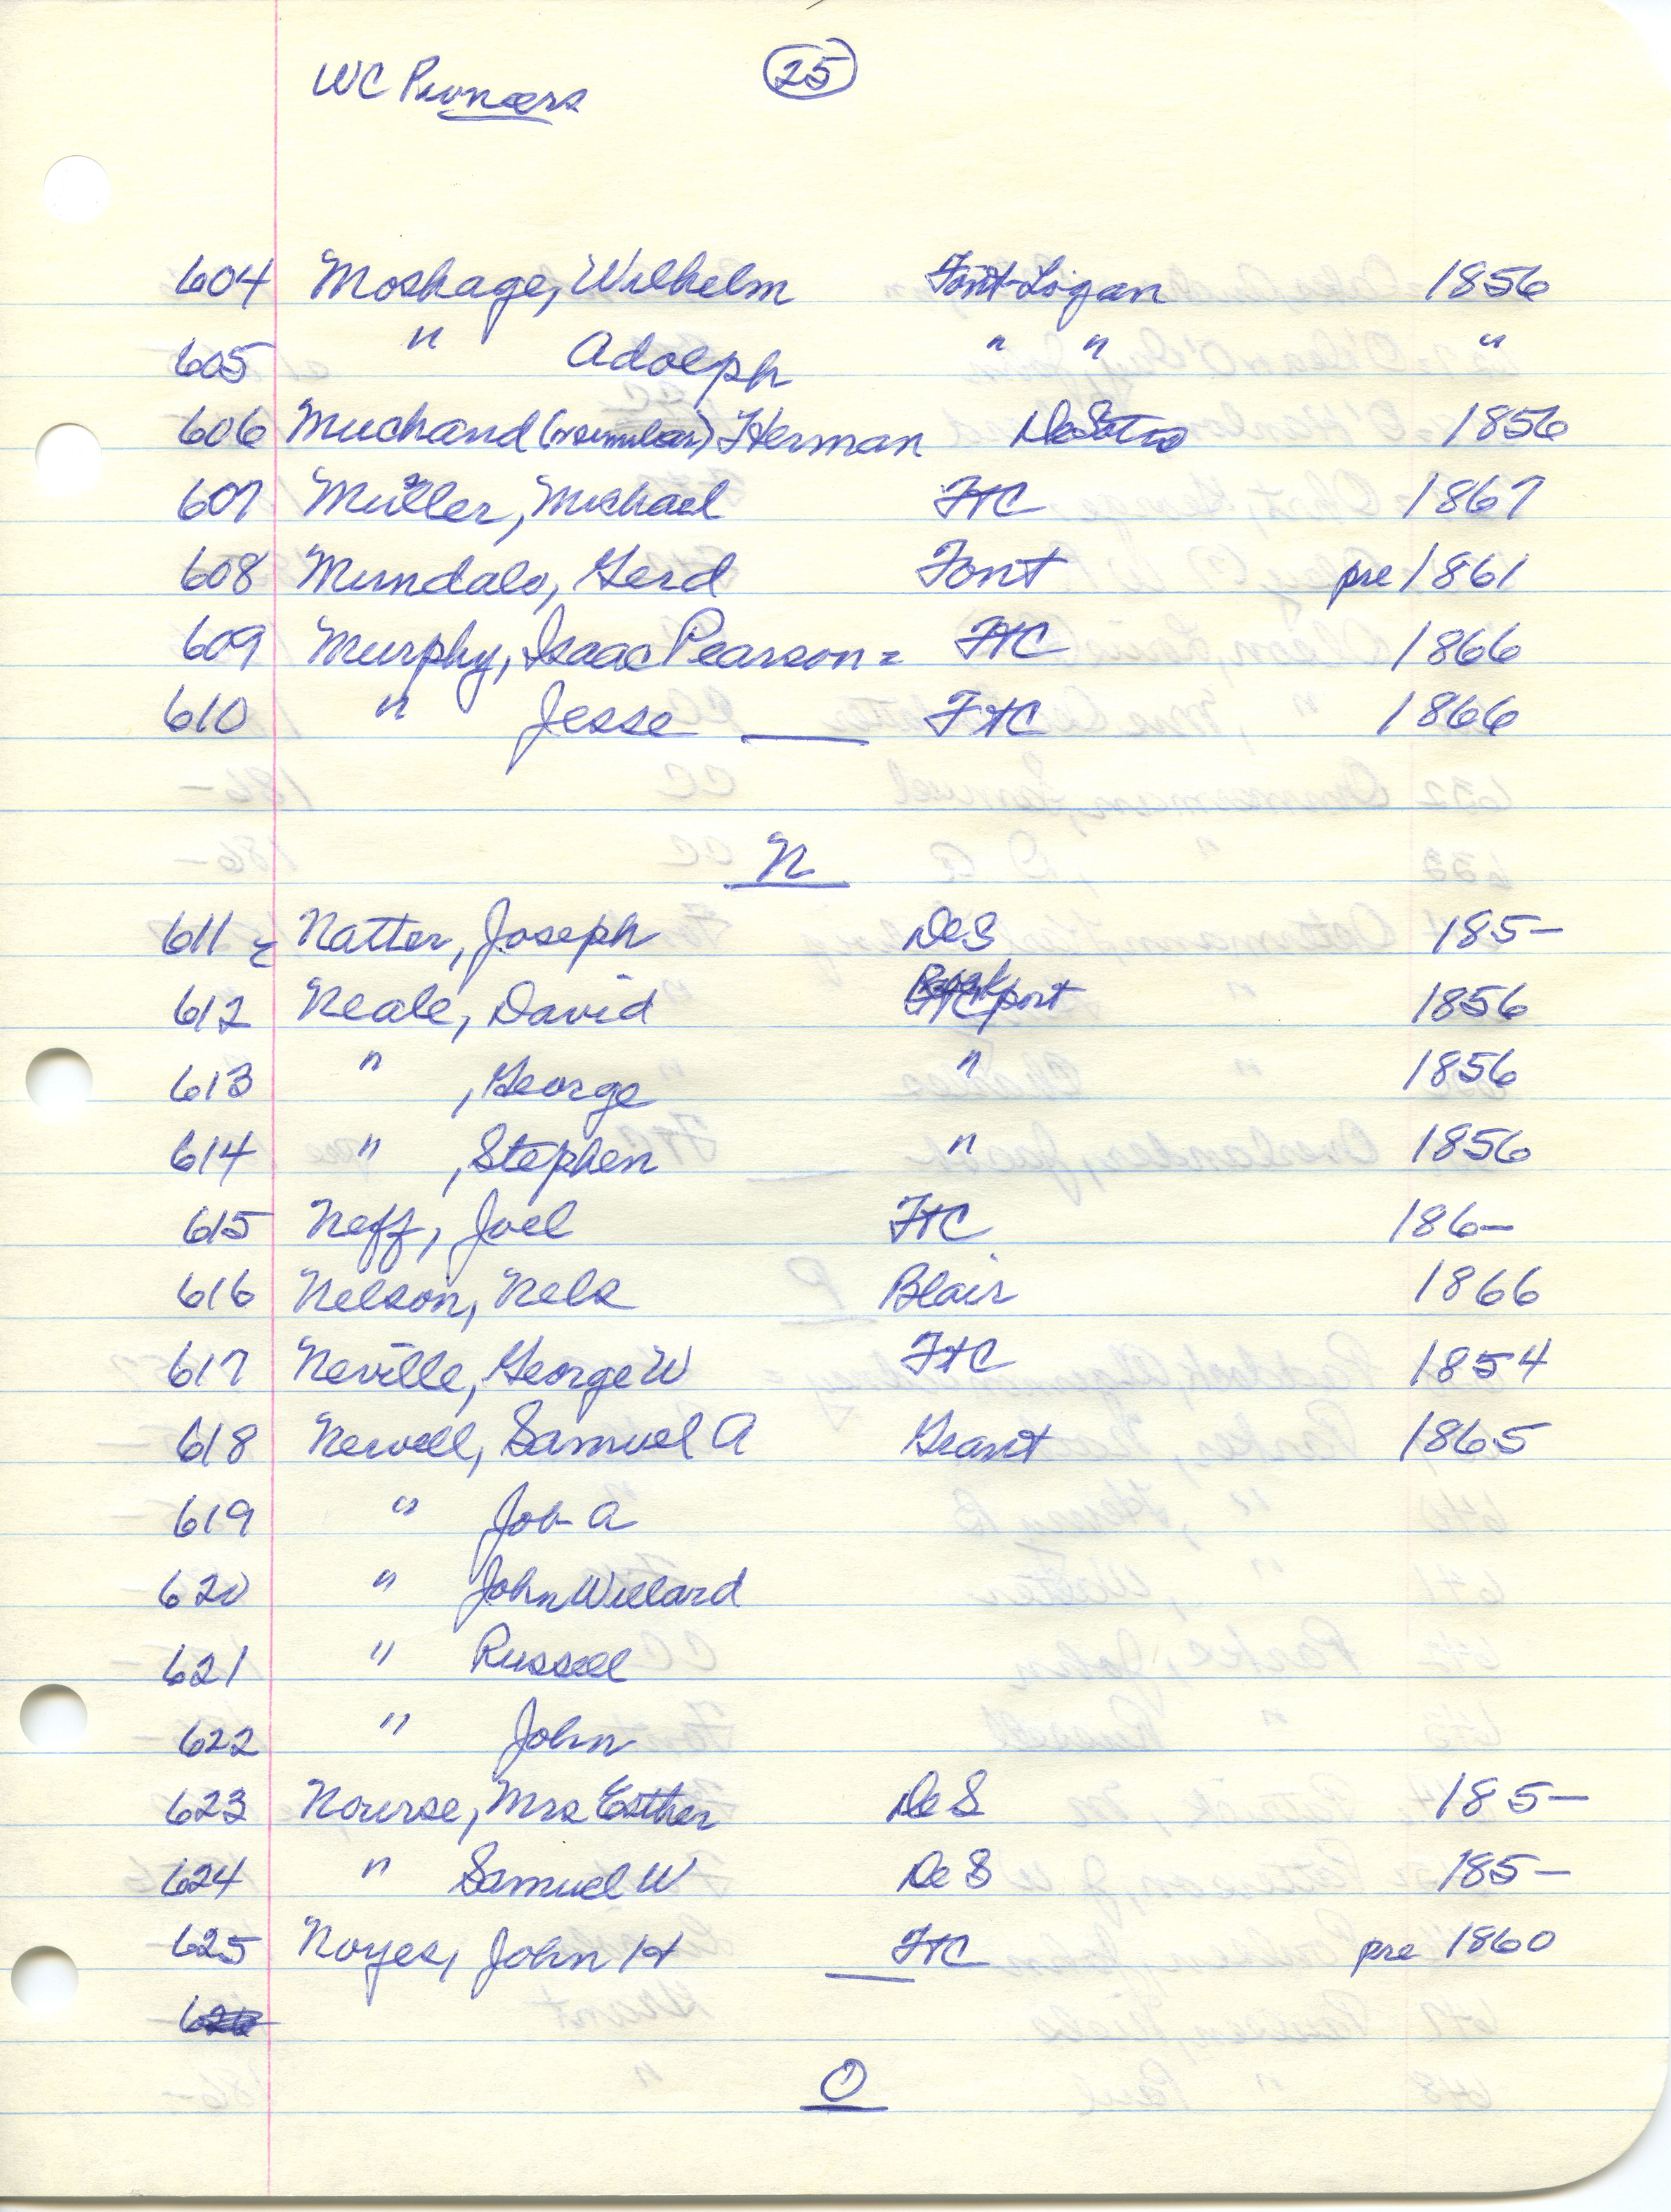 WC Pioneers 25
604 Moshage, Wilhelm Font-Logan 1856
605 " Adolph " " "
606 Muchand (or similar) Herman DeSoto 1856
607 Müller, Michael FtC 1867
608 Mundalo, Gerd Font pre 1861
609 Murphy, Isaac Pearson = FtC 1866
610 " Jesse FtC 1866
N
611 Natter, Joseph DeS 185-
612 Neale, David Rockport 1856
613 " , George " 1856
614 " , Stephen " 1856
615 Neff, Joel FtC 186-
616 Nelson, Nels Blair 1866
617 Neville, George W FtC 1854
618 Newell, Samuel A Grant 1865
619 " Job A
620 " John Willard
621 " Russell
622 " John
623 Nourse, Mrs Esther DeS 185-
624 " Samuel W DeS 185-
625 Noyes, John H FtC pre 1860
626
O